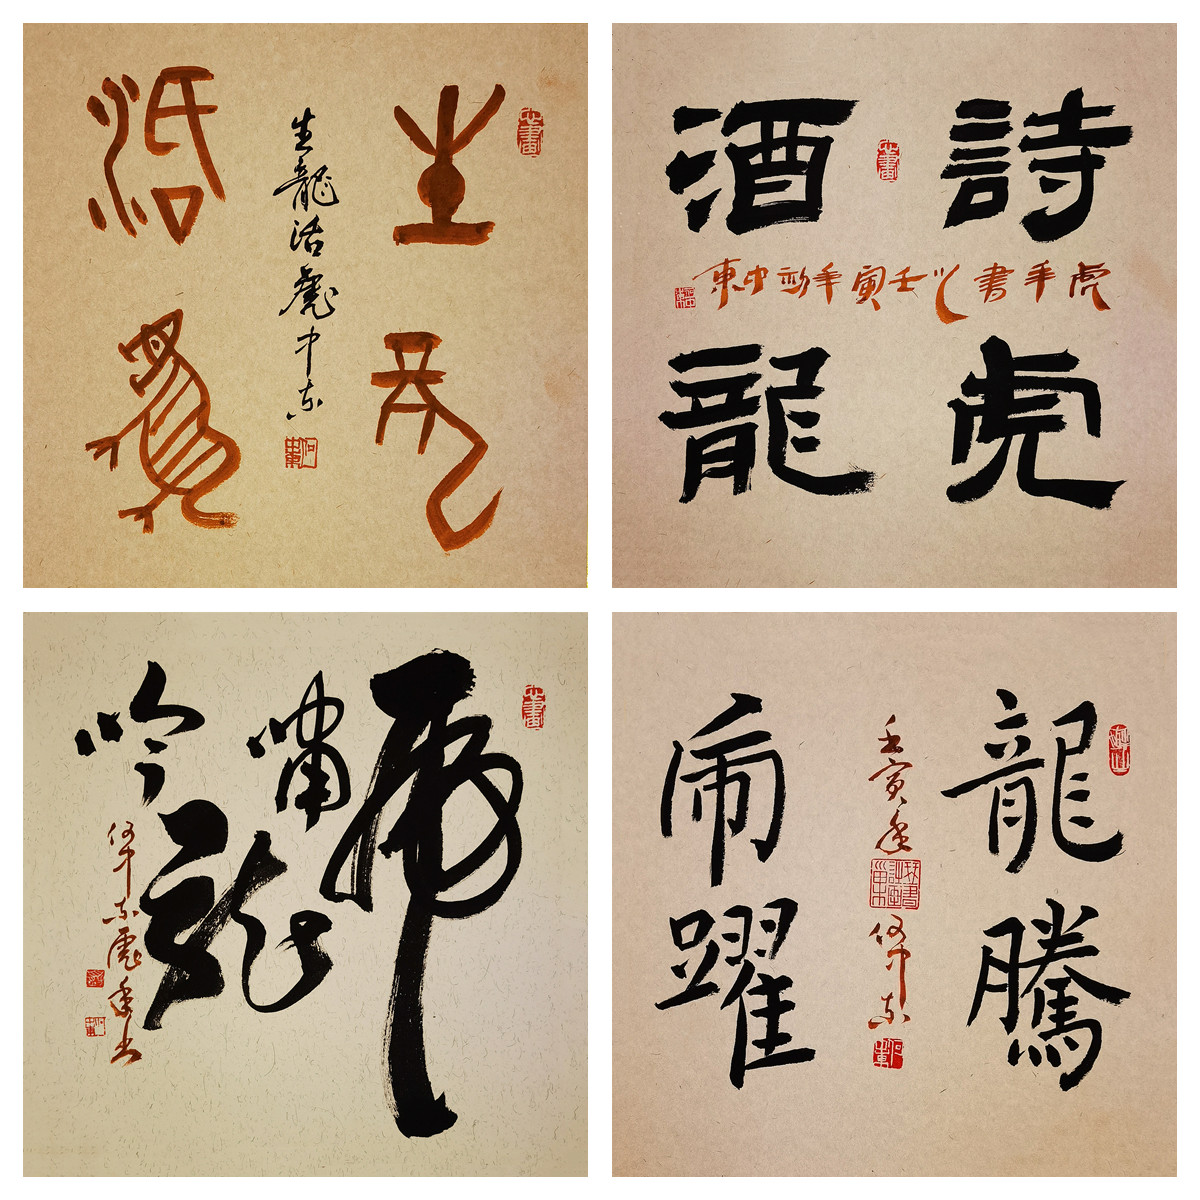 生龍
生龍活虎中东
活虎
詩虎
虎年書
壬寅年初中東
酒龍
虎
嘯龍
吟
何中东虎年书
龍騰
壬寅年
何中东
虎躍